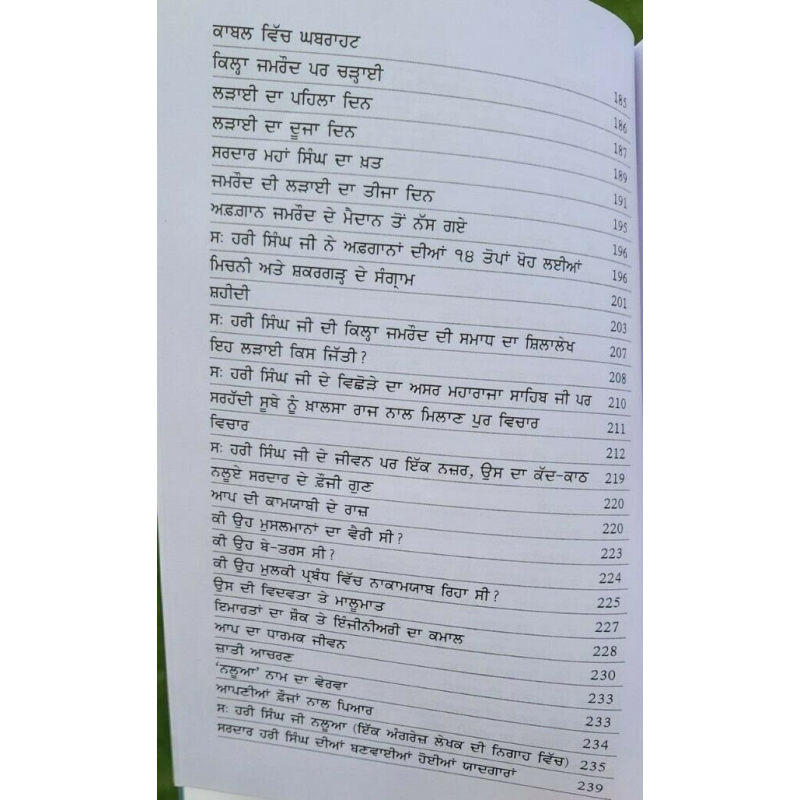 ਕਾਬਲ ਵਿੱਚ ਘਬਰਾਹਟ 185
ਕਿਲ੍ਹਾ ਜਮਰੌਦ ਪਰ ਚੜ੍ਹਾਈ 186
ਲੜਾਈ ਦਾ ਪਹਿਲਾ ਦਿਨ 187
ਲੜਾਈ ਦਾ ਦੂਜਾ ਦਿਨ 189
ਸਰਦਾਰ ਮਹਾਂ ਸਿੰਘ ਦਾ ਖ਼ਤ 191
ਜਮਰੌਦ ਦੀ ਲੜਾਈ ਦਾ ਤੀਜਾ ਦਿਨ 195
ਅਫ਼ਗਾਨ ਜਮਰੌਦ ਦੇ ਮੈਦਾਨ ਤੋਂ ਨੱਸ ਗਏ 196
ਸ: ਹਰੀ ਸਿੰਘ ਜੀ ਨੇ ਅਫਗਾਨਾਂ ਦੀਆਂ ੧੪ ਤੋਪਾਂ ਖੋਹ ਲਈਆਂ 196
ਮਿਚਨੀ ਅਤੇ ਸ਼ਕਰਗੜ੍ਹ ਦੇ ਸੰਗ੍ਰਾਮ 201
ਸ਼ਹੀਦੀ 203
ਸ: ਹਰੀ ਸਿੰਘ ਜੀ ਦੀ ਕਿਲ੍ਹਾ ਜਮਰੌਦ ਦੀ ਸਮਾਧ ਦਾ ਸ਼ਿਲਾਲੇਖ 207
ਇਹ ਲੜਾਈ ਕਿਸ ਜਿੱਤੀ? 208
ਸ: ਹਰੀ ਸਿੰਘ ਜੀ ਦੇ ਵਿਛੋੜੇ ਦਾ ਅਸਰ ਮਹਾਰਾਜਾ ਸਾਹਿਬ ਜੀ ਪਰ 210
ਸਰਹੱਦੀ ਸੂਬੇ ਨੂੰ ਖ਼ਾਲਸਾ ਰਾਜ ਨਾਲ ਮਿਲਾਣ ਪੁਰ ਵਿਚਾਰ 211
ਵਿਚਾਰ 212
ਸ: ਹਰੀ ਸਿੰਘ ਜੀ ਦੇ ਜੀਵਨ ਪਰ ਇੱਕ ਨਜ਼ਰ, ਉਸ ਦਾ ਕੱਦ-ਕਾਠ 219
ਨਲੂਏ ਸਰਦਾਰ ਦੇ ਫ਼ੌਜੀ ਗੁਣ 220
ਆਪ ਦੀ ਕਾਮਯਾਬੀ ਦੇ ਰਾਜ਼ 220
ਕੀ ਉਹ ਮੁਸਲਮਾਨਾਂ ਦਾ ਵੈਰੀ ਸੀ? 223
ਕੀ ਉਹ ਬੇ-ਤਰਸ ਸੀ? 224
ਕੀ ਉਹ ਮੁਲਕੀ ਪ੍ਰਬੰਧ ਵਿੱਚ ਨਾਕਾਮਯਾਬ ਰਿਹਾ ਸੀ? 225
ਉਸ ਦੀ ਵਿਦਵਤਾ ਤੇ ਮਾਲੂਮਾਤ 227
ਇਮਾਰਤਾਂ ਦਾ ਸ਼ੌਕ ਤੇ ਇੰਜੀਨੀਅਰੀ ਦਾ ਕਮਾਲ 228
ਆਪ ਦਾ ਧਾਰਮਕ ਜੀਵਨ 230
ਜ਼ਾਤੀ ਆਚਰਣ 233
'ਨਲੂਆ' ਨਾਮ ਦਾ ਵੇਰਵਾ 233
ਆਪਣੀਆਂ ਫ਼ੌਜਾਂ ਨਾਲ ਪਿਆਰ 234
ਸ: ਹਰੀ ਸਿੰਘ ਜੀ ਨਲੂਆ (ਇੱਕ ਅੰਗਰੇਜ਼ ਲੇਖਕ ਦੀ ਨਿਗਾਹ ਵਿੱਚ) 235
ਸਰਦਾਰ ਹਰੀ ਸਿੰਘ ਦੀਆਂ ਬਣਵਾਈਆਂ ਹੋਈਆਂ ਯਾਦਗਾਰਾਂ 239